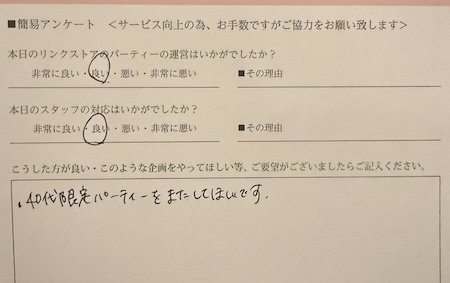 ■簡易アンケート <サービス向上の為、お手数ですがご協力をお願い致します>
本日のリンクストアのパーティーの運営はいかがでしたか?
非常に良い・良い・悪い・非常に悪い ■その理由
本日のスタッフの対応はいかがでしたか?
非常に良い・良い・悪い・非常に悪い ■その理由
こうした方が良い・このような企画をやってほしい等、ご要望がございましたらご記入ください。
・40代限定パーティーをまたしてほしいです.